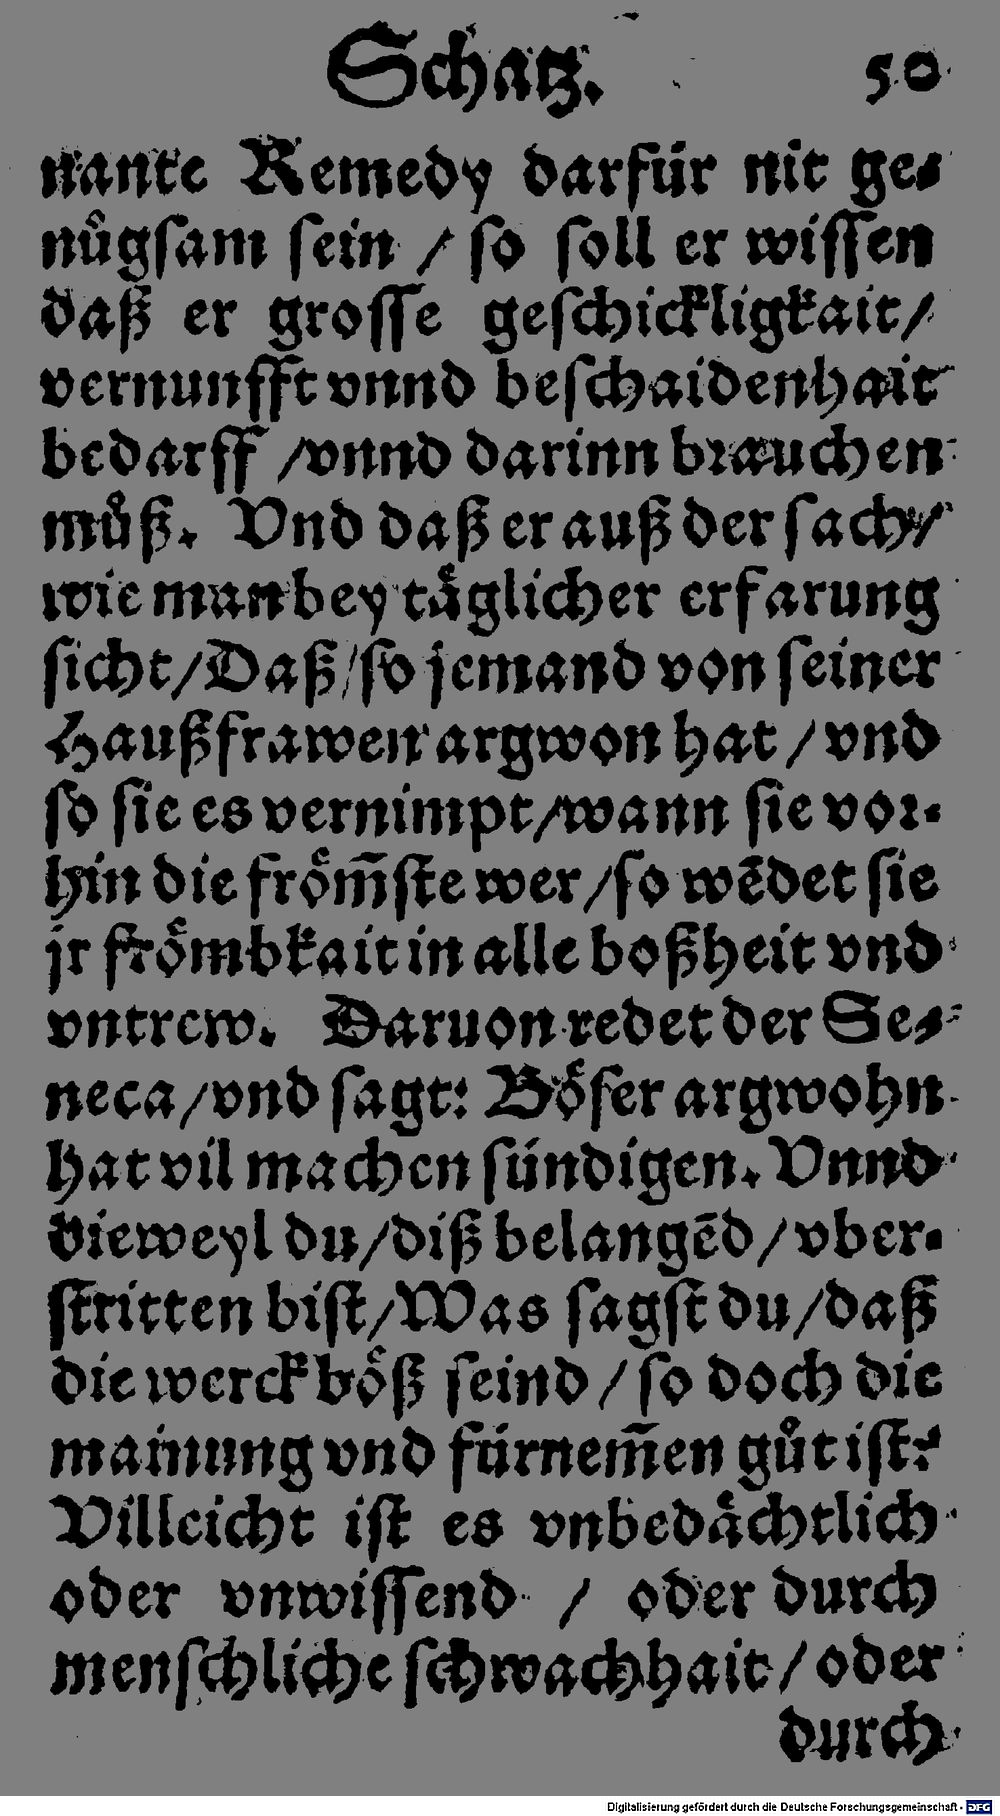 Schatz. 50
nante Remedy darfür nit ge⸗
nuͤgsam sein / so soll er wissen
daß er grosse geschickligkait /
vernunfft vnnd beschaidenhait
bedarff / vnnd darinn brauchen
muͦß. Vnd daß er auß der sach /
wie man bey taͤglicher erfarung
sicht / Daß / so jemand von seiner
Haußfrawen argwon hat / vnd
so sie es vernimpt / wann sie vor⸗
hin die froͤm̄ste wer / so wēdet sie
jr froͤmbkait in alle boßheit vnd
vntrew. Daruon redet der Se⸗
neca / vnd sagt: Boͤser argwohn
hat vil machen sündigen. Vnnd
dieweyl du / diß belangēd / vber⸗
stritten bist / Was sagst du / daß
die werck boͤß seind / so doch die
mainung vnd fürnem̄en guͦt ist?
Villeicht ist es vnbedaͤchtlich
oder vnwissend / oder durch
menschliche schwachhait / oder
durch
Digitalisierung gefördert durch die Deutsche Forschungsgemeinschaft - DFG